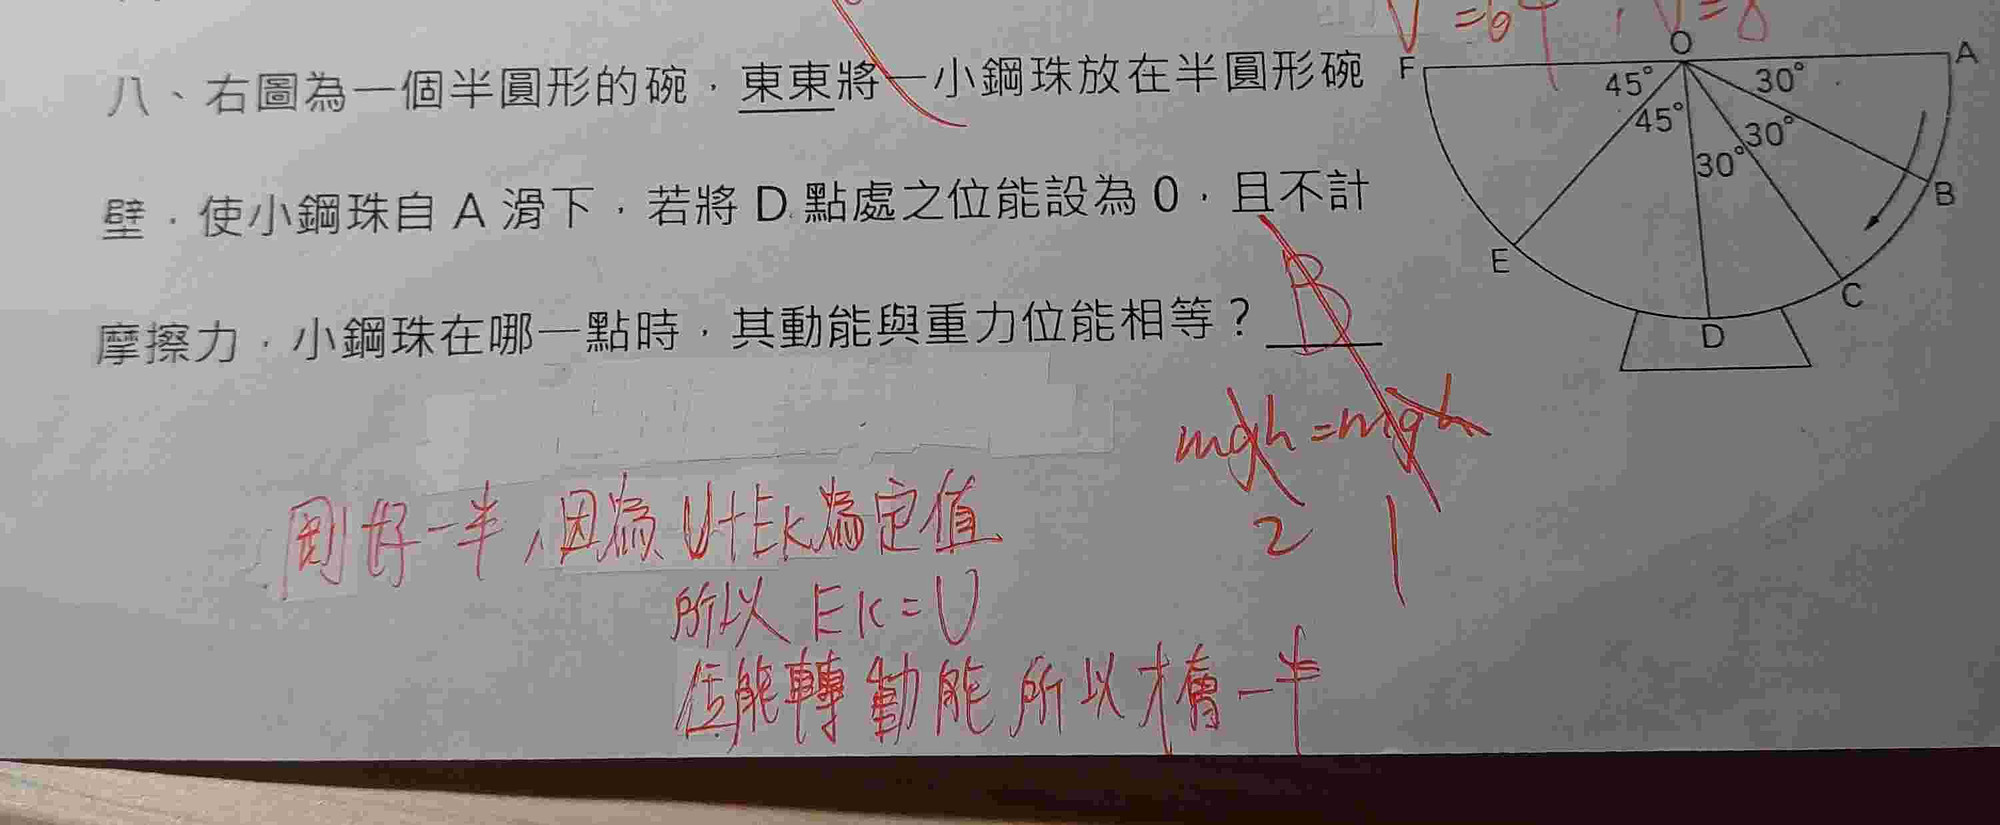 V =64, V=8
八、右圖為一個半圓形的碗，東東將一小鋼珠放在半圓形碗
壁，使小鋼珠自 A 滑下，若將 D 點處之位能設為 0，且不計
摩擦力，小鋼珠在哪一點時，其動能與重力位能相等？ B
O
F
A
45°
30°
45°
30°
30°
B
E
C
D
mgh=mgh
2 1
剛好一半，因為 U+Ek為定值
所以 Ek=U
位能轉動能 所以才會一半